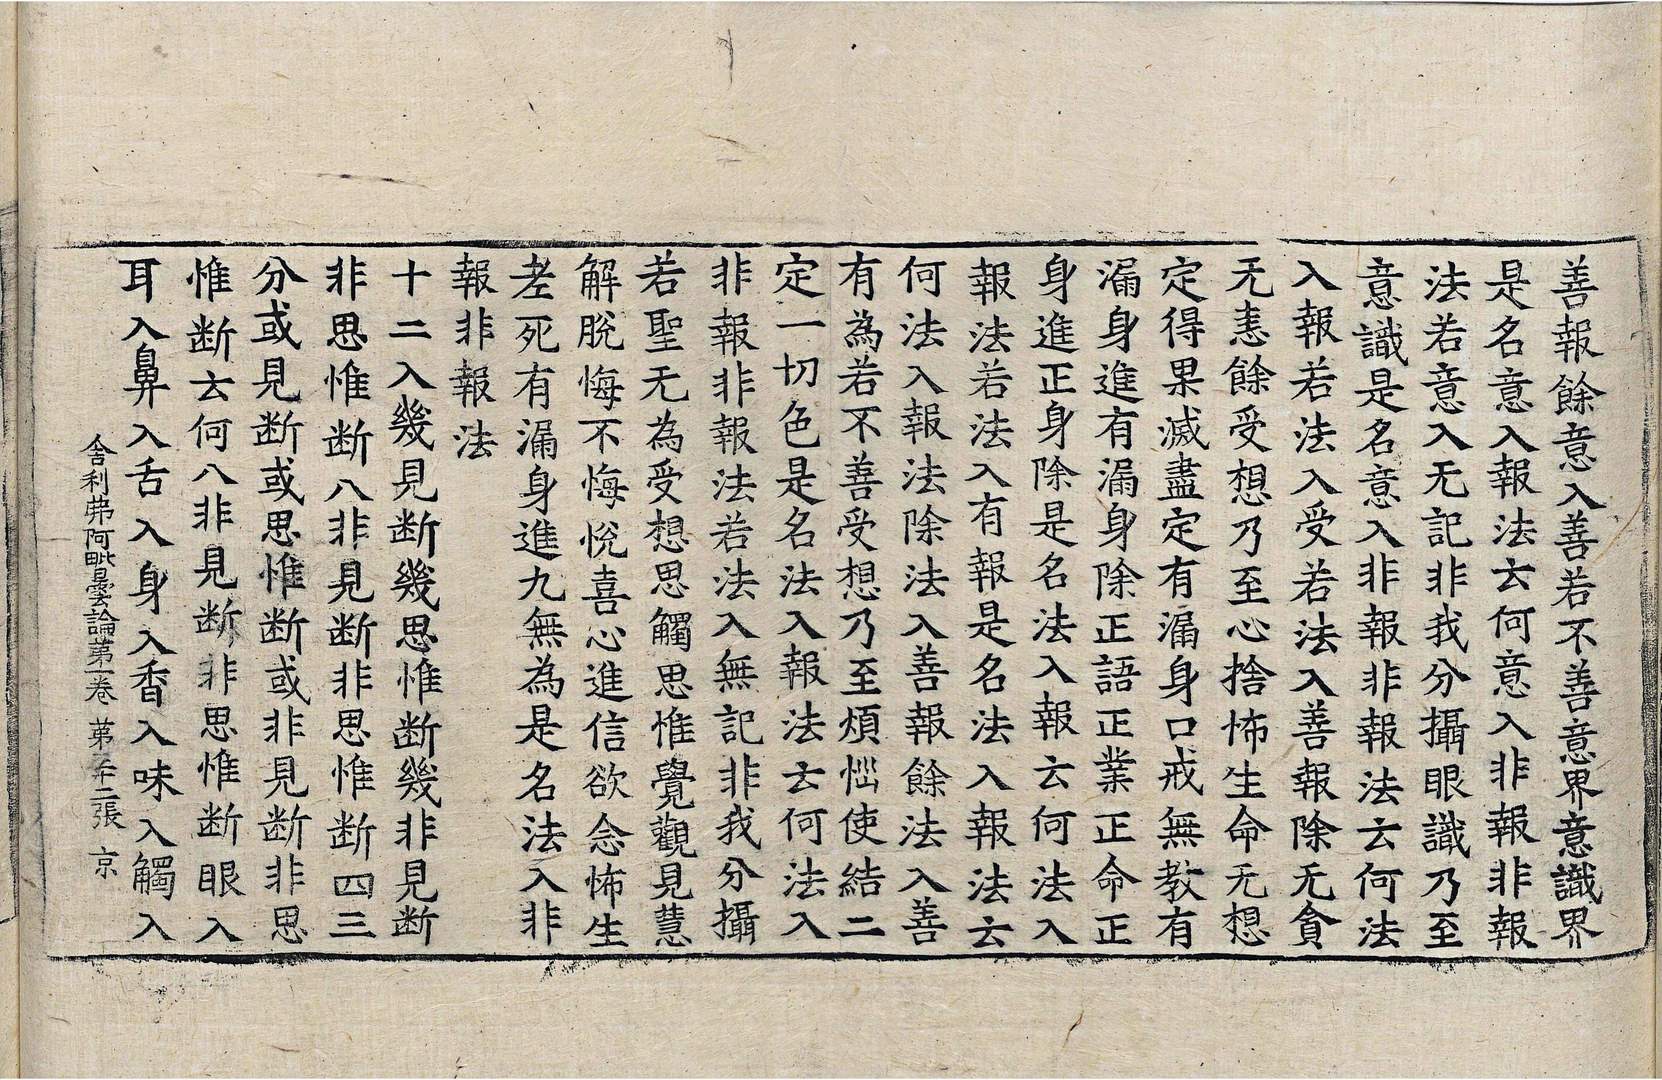 善報餘意入善若不善意界意識界
是名意入報法云何意入非報非報
法若意入无記非我分攝眼識乃至
意識是名意入非報非報法云何法
入報若法入受若法入善報除无貪
无恚餘受想乃至心捨怖生命无想
定得果滅盡定有漏身口戒無教有
漏身進有漏身除正語正業正命正
身進正身除是名法入報云何法入
報法若法入有報是名法入報法云
何法入報法除法入善報餘法入善
有為若不善受想乃至煩惱使結二
定一切色是名法入報法云何法入
非報非報法若法入無記非我分攝
若聖无為受想思觸思惟覺觀見慧
解脫悔不悔悅喜心進信欲念怖生
老死有漏身進九無為是名法入非
報非報法
十二入幾見断幾思惟断幾非見断
非思惟断八非見断非思惟断四三
分或見断或思惟断或非見断非思
惟断云何八非見断非思惟断眼入
耳入鼻入舌入身入香入味入觸入
舍利弗阿毗曇論第一卷 第二十二張 京